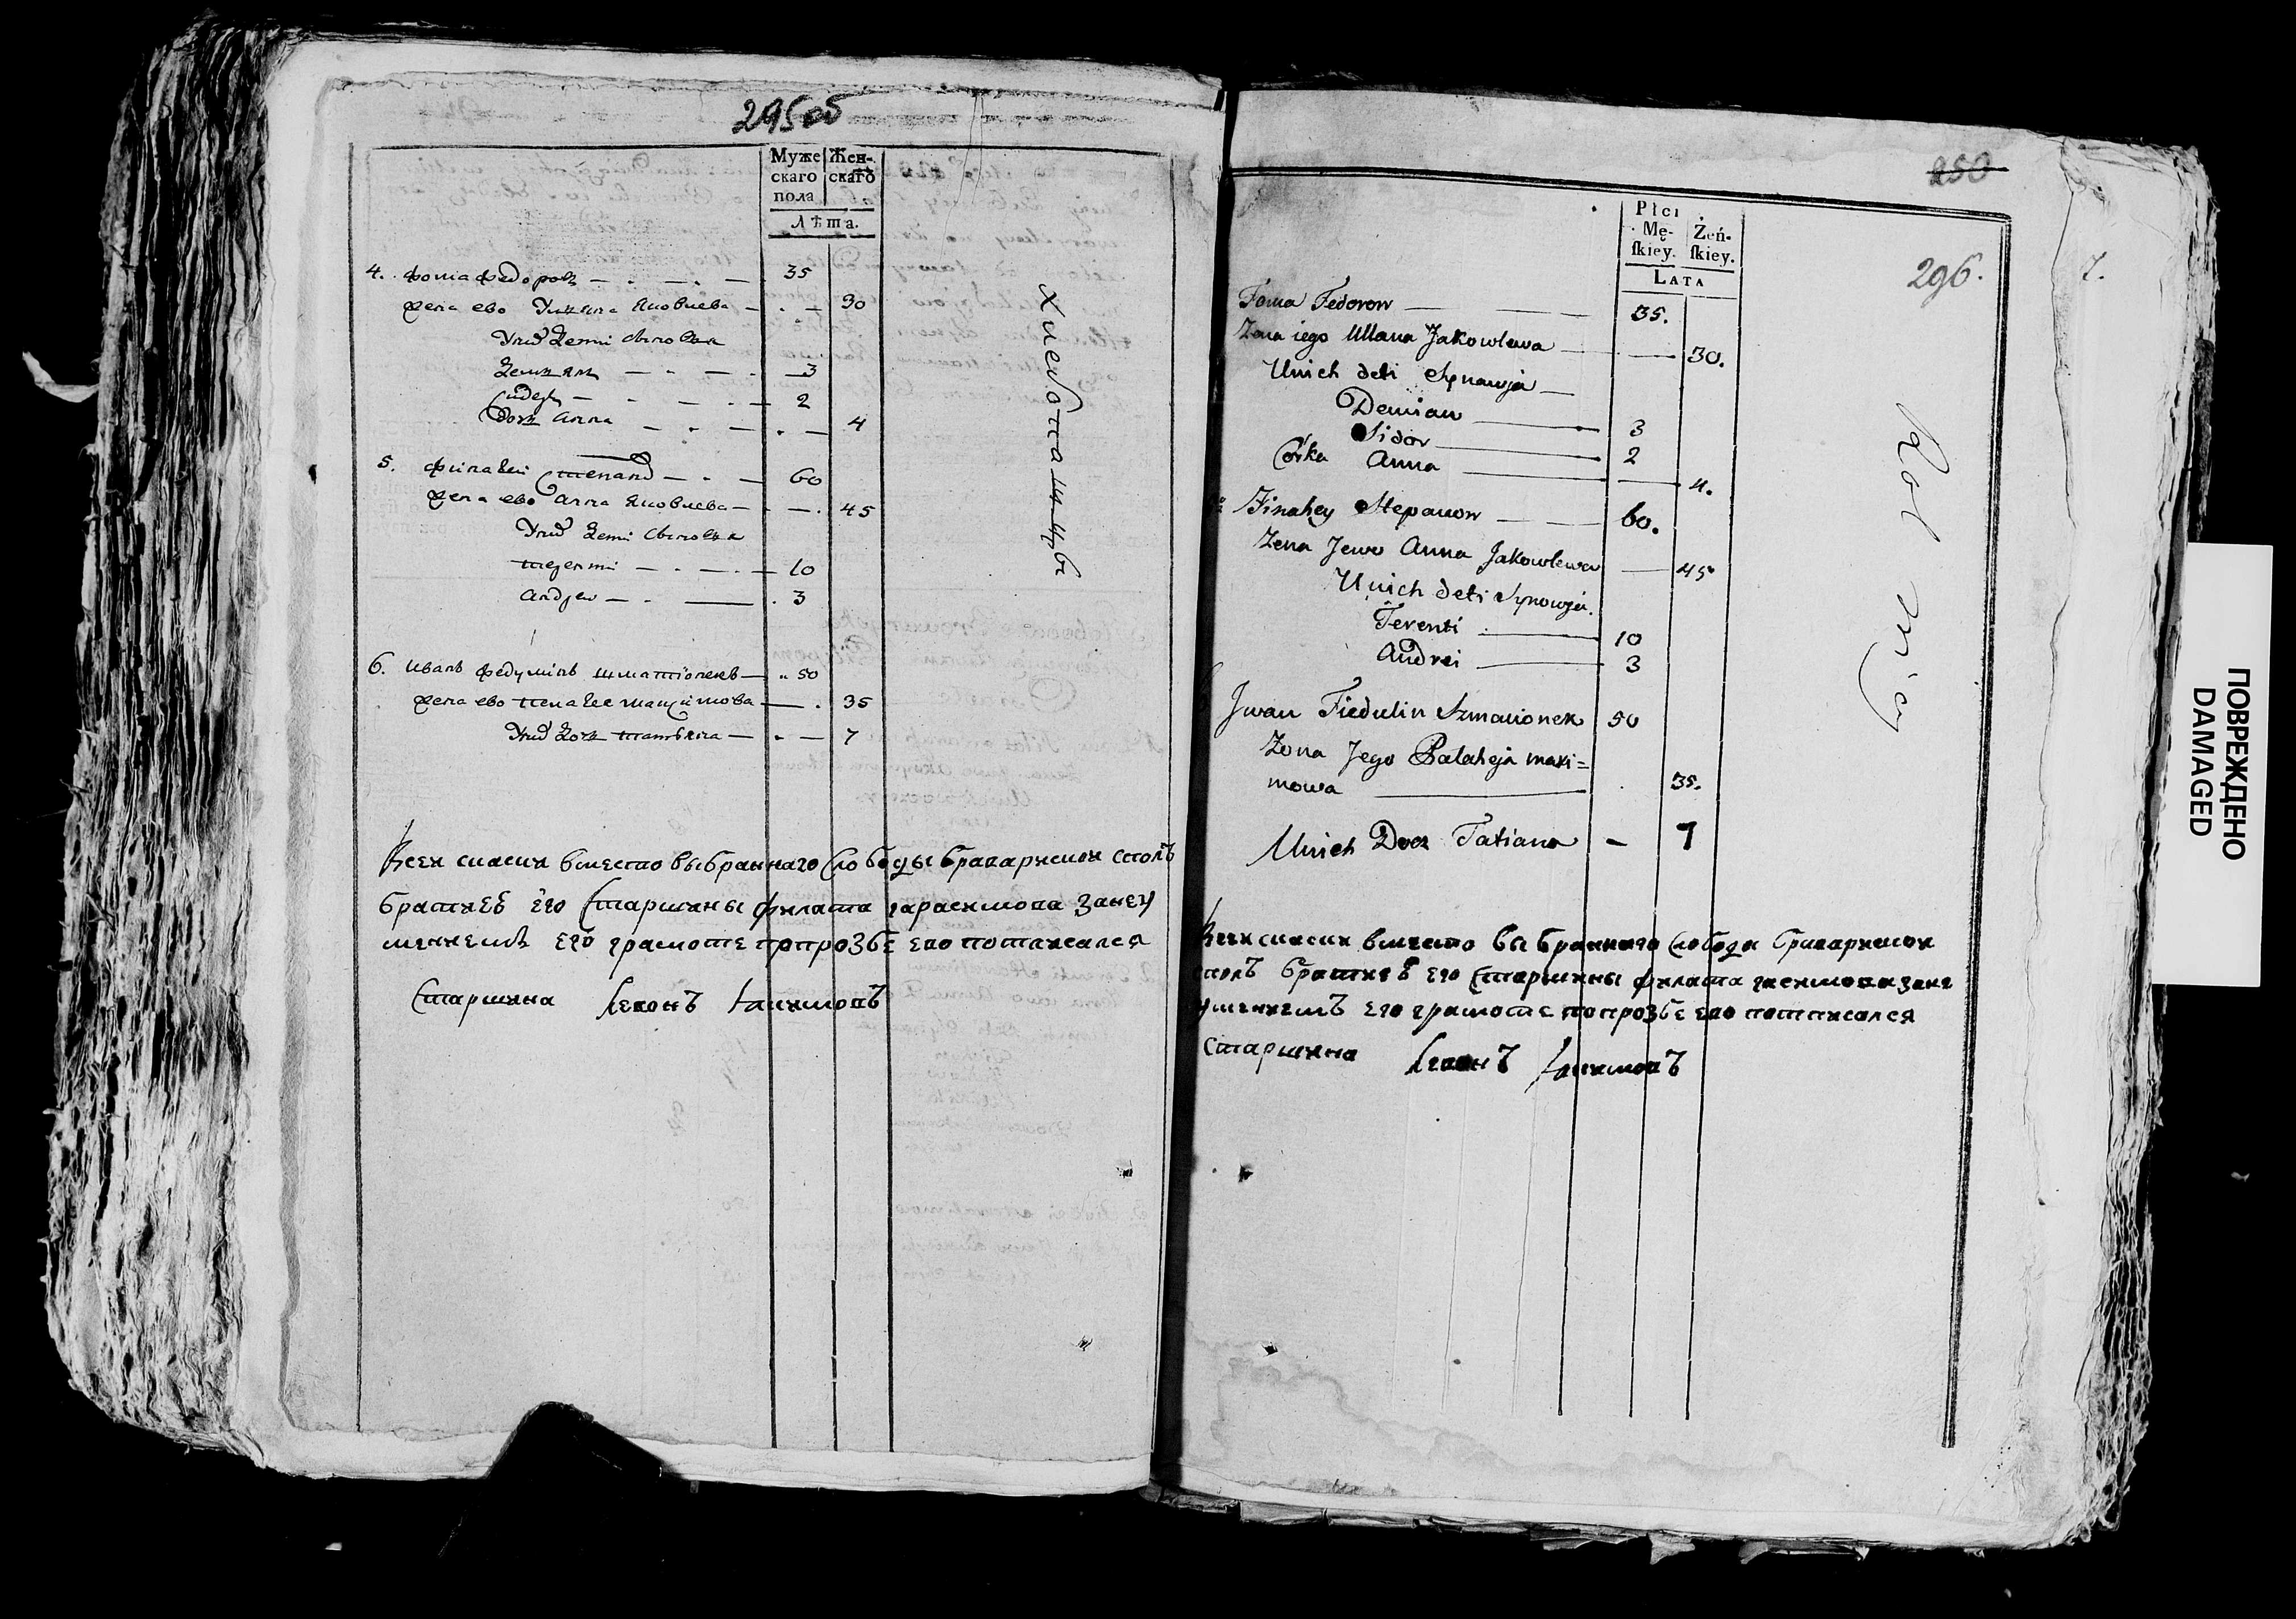 295об
Муже Жен-
скаго скаго
пола
Лѣта.
4. Фома Федоровъ 35
жена ево Ульяна Яковлева 30
У них дети сыновья
Демьян 3
Сидор 2
дочь Анна 4
5. Финагей Степанов 60
жена ево Анна Яковлева 45
У них дети сыновья
Терентий 10
Андрей 3
6. Иванъ Федулинъ Шматіонекъ 50
жена ево Пелагее Максимова 35
У них дочь Татьяна 7
хлебопашцы
вместо выбраннаго слободы
братцевъ его старшины Филата Гарасимова
грамоте по прозбе ево потписался
Старшина Леонъ
250
296.
7.
Płci
Mę- Żeń-
ſkiey. ſkiey.
LATA
Foma Fedorow 35.
Zona iego Ullana Jakowlewa 30.
Unich deti Synowja
Demian 3
Sidor 2
Córka Anna 4.
Finahey Stepanow 60.
Zena Jewo Anna Jakowlewa 45
Unich deti Synowja.
Terenti 10
Andrei 3
Jwan Fiedulin Szmacionek 50
Zona Jego Palaheja maxi=
mowa 35.
Unich Docz Tatiana 7
вместо выбраннаго слободы
братцевъ его старшины Филата
его грамоте по прозбе ево потписался
старшина Леонъ
ПОВРЕЖДЕНО
DAMAGED